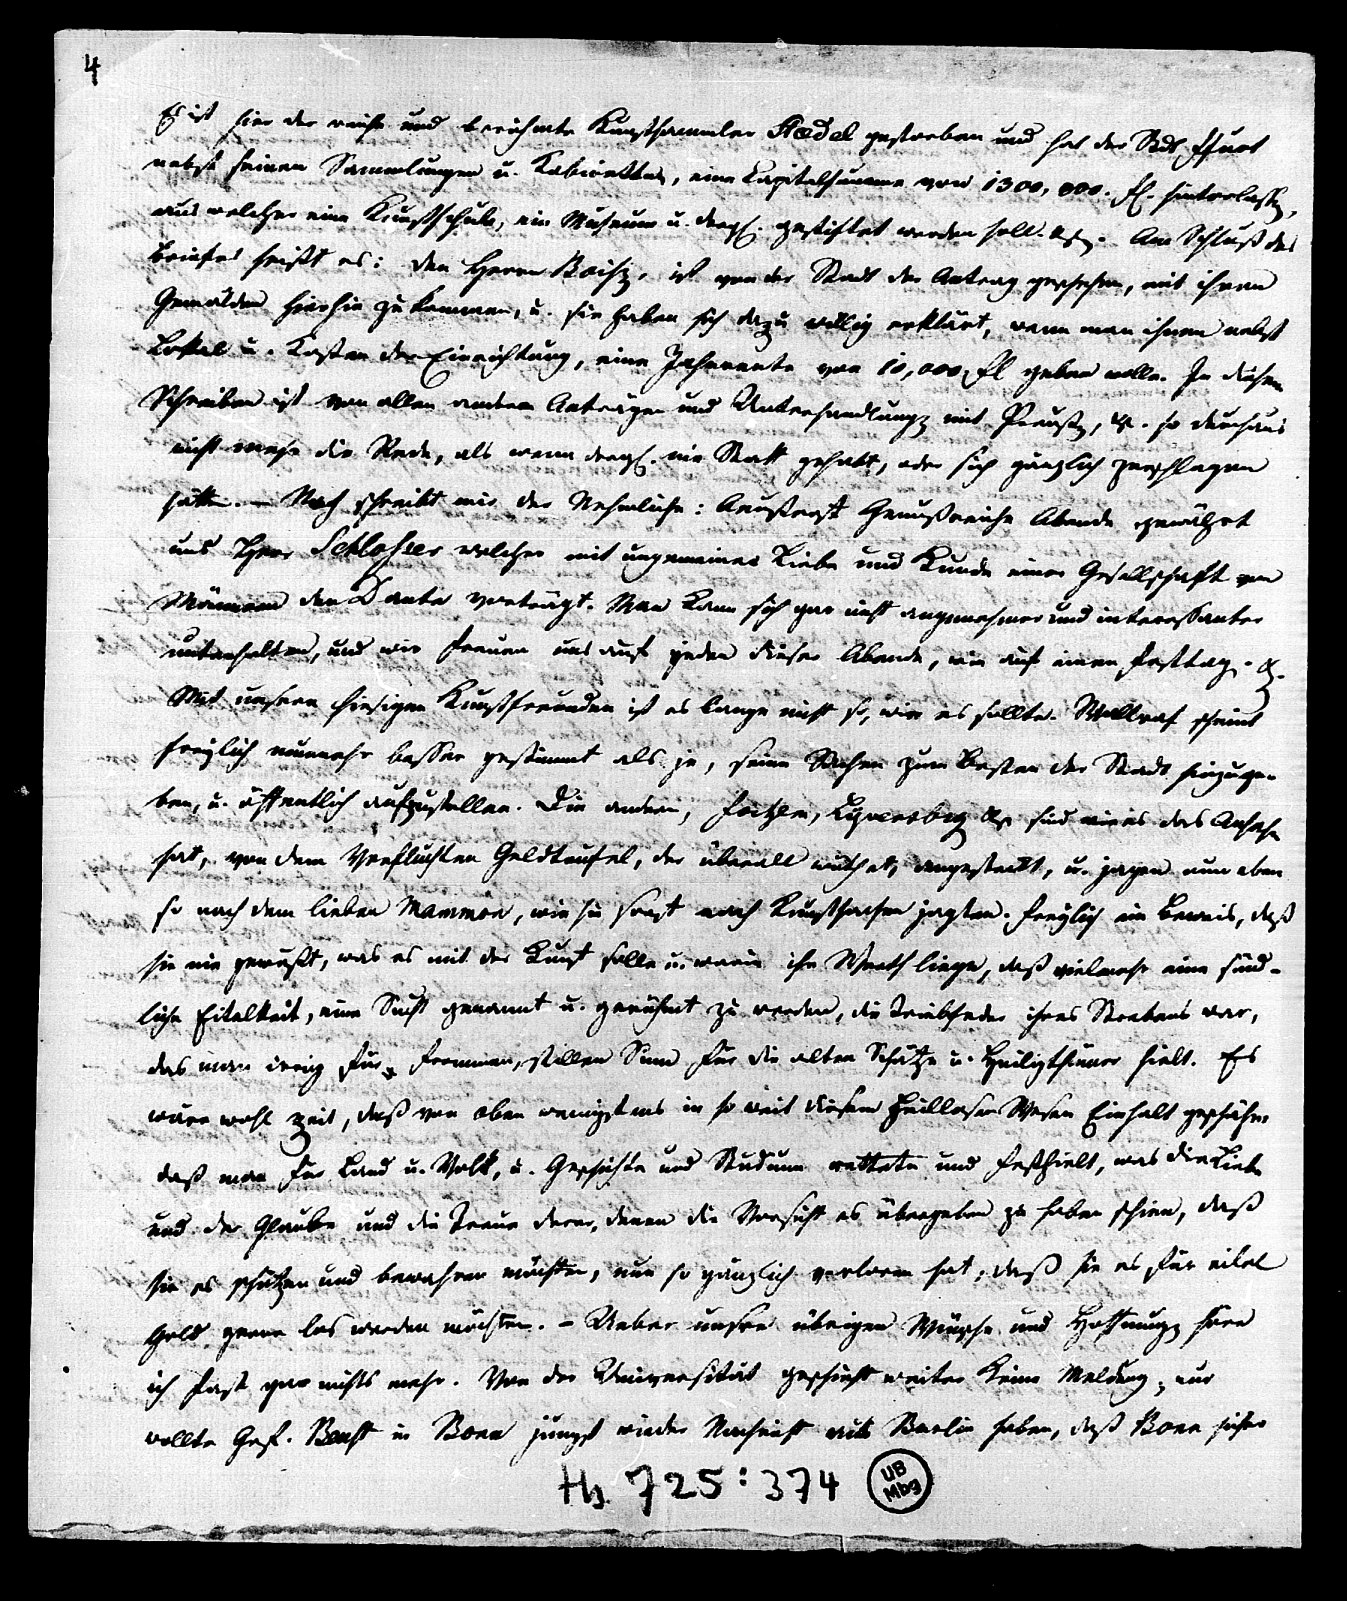 4
Es ist hier der reiche und berühmte Kunstsammler Städel gestorben und hat der Stadt Ffurt
nebst seinen Sammlungen u. Kabinetten, eine Capitalsumme von 1300,000. fl. hinterlassen,
aus welcher eine Kunstschule, ein Museum u. dergl. gestiftet werden soll. Am Schluß des
Briefes heißt es: den Herrn Boiss. ist von der Stadt der Antrag geschehen, mit ihren
Gemälden hierhin zu kommen, u. sie haben sich dazu willig erklärt, wenn man ihnen nebst
Lokal u. Kosten der Einrichtung, eine Jahrrente von 10,000 fl geben wolle. In diesem
Schreiben ist von allen andern Anträgen und Unterhandlungen mit Preußen, so durchaus
nicht mehr die Rede, als wenn dergl. nie Statt gehabt, oder sich gänzlich zerschlagen
hätte. – Noch schreibt mir der Nehmliche: Aeußerst Genußreiche Abende gewährt
uns Herr Schlosser welcher mit ungemeiner Liebe und Kunde einer Gesellschaft von
Männern den Dante vorträgt. Man kann sich gar nicht angenehmer und interessanter
unterhalten, und wir freuen uns auf jeden dieser Abende, wie auf einen Festtag.
Mit unsern hiesigen Kunstfreunden ist es lange nicht so, wie es sollte. Wallraf scheint
freylich nunmehr besser gestimmt als je, seine Sachen zum Besten der Stadt hinzuge-
ben, u. öffentlich aufzustellen. Die andern, Lyversberg sind wie es das Ansehn
hat, von dem verfluchten Geldteufel, der überall wüthet, angesteckt, u. jagen nun eben
so nach dem lieben Mammon, wie sie sonst nach Kunstsachen jagten. Freylich ein Beweis, daß
sie nie gewußt, was es mit der Kunst solle u. worin ihr Werth liege, daß vielmehr eine sünd-
liche Eitelkeit, eine Sucht genannt u. gerühmt zu werden, die Triebfeder ihres Strebens war,
das man irrig für frommen, stillen Sinn für die alten Schätze u. Heiligthümer hielt. Es
wäre wohl Zeit, daß von oben wenigstens in so weit diesem heillosen Wesen Einhalt geschähe,
daß man für Land u. Volk, u. Geschichte und Studium rettete und festhielt, was die Liebe
und der Glaube und die Treue derer, denen die Vorsicht es übergeben zu haben schien, daß
sie es schützen und bewahren möchten, nun so gänzlich verloren hat, daß sie es für eitel
Geld gerne los werden möchten. – Ueber unsre übrigen Wünsche und Hoffnungen höre
ich fast gar nichts mehr. Von der Universität geschieht weiter keine Meldung, nur
wollte Gr. in Bonn jüngst wieder Nachricht aus Berlin haben, daß Bonn sicher
Hs. 725:374
UB
Mbg